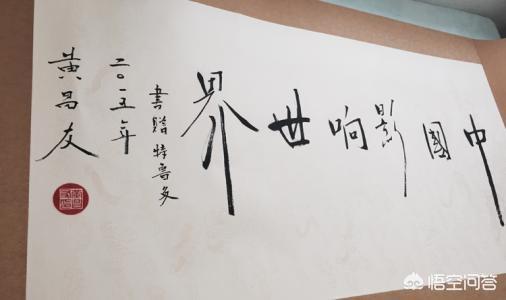 中國影响世界
書贈特魯多
二〇一五年
黄昌友
悟空问答